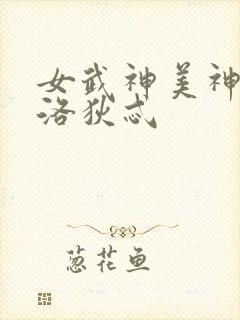 女武神美神
洛狄忒
葱花鱼